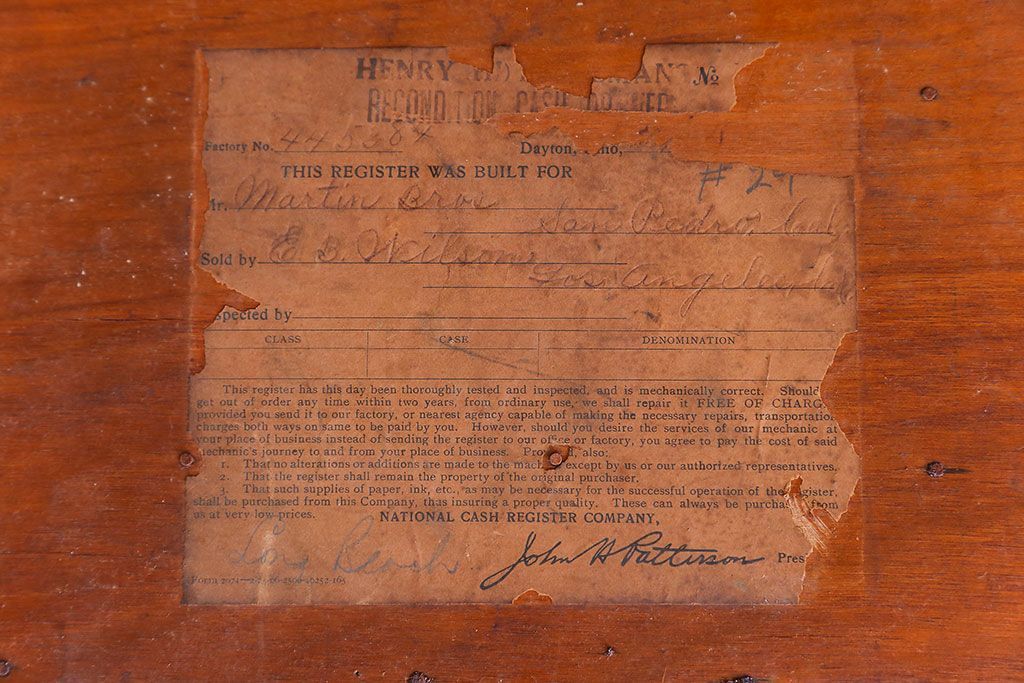 HENRY Nº
RECONDITION CASH
Factory No. 445384 Dayton,
THIS REGISTER WAS BUILT FOR # 29
Martin Bros
San Pedro, Cal.
Sold by E. B. Wilson
Los Angeles,
spected by
CLASS CASE DENOMINATION
This register has this day been thoroughly tested and inspected, and is mechanically correct. Should
get out of order any time within two years, from ordinary use, we shall repair it FREE OF CHARG
provided you send it to our factory, or nearest agency capable of making the necessary repairs, transportation
charges both ways on same to be paid by you. However, should you desire the services of our mechanic at
your place of business instead of sending the register to our office or factory, you agree to pay the cost of said
mechanic's journey to and from your place of business. Pro d, also:
1. That no alterations or additions are made to the mach except by us or our authorized representatives.
2. That the register shall remain the property of the original purchaser.
3. That such supplies of paper, ink, etc., as may be necessary for the successful operation of the register,
shall be purchased from this Company, thus insuring a proper quality. These can always be purchas from
us at very low prices.
NATIONAL CASH REGISTER COMPANY,
Long Beach
John H Patterson Pres
Form 2074